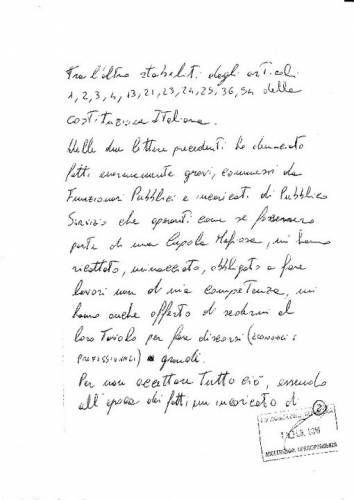 Tra l'altro stabiliti dagli articoli
1, 2, 3, 4, 13, 21, 23, 24, 25, 36, 54 della
Costituzione Italiana.
Nelle due lettere precedenti ho denunciato
fatti enormemente gravi, commessi da
Funzionari Pubblici e incaricati di Pubblico
Servizio che operanti come se fossero
parte di una Cupola Mafiosa, mi hanno
ricattato, minacciato, obbligato a fare
lavori non di mia competenza, mi
hanno anche offerto di sedermi al
loro Tavolo per fare discorsi (ECONOMICI e
PROFESSIONALI) grandi.
Per non accettare Tutto ciò, essendo
all'epoca dei fatti, un incaricato di
2
ACCETTAZIONE CORRISPONDENZA